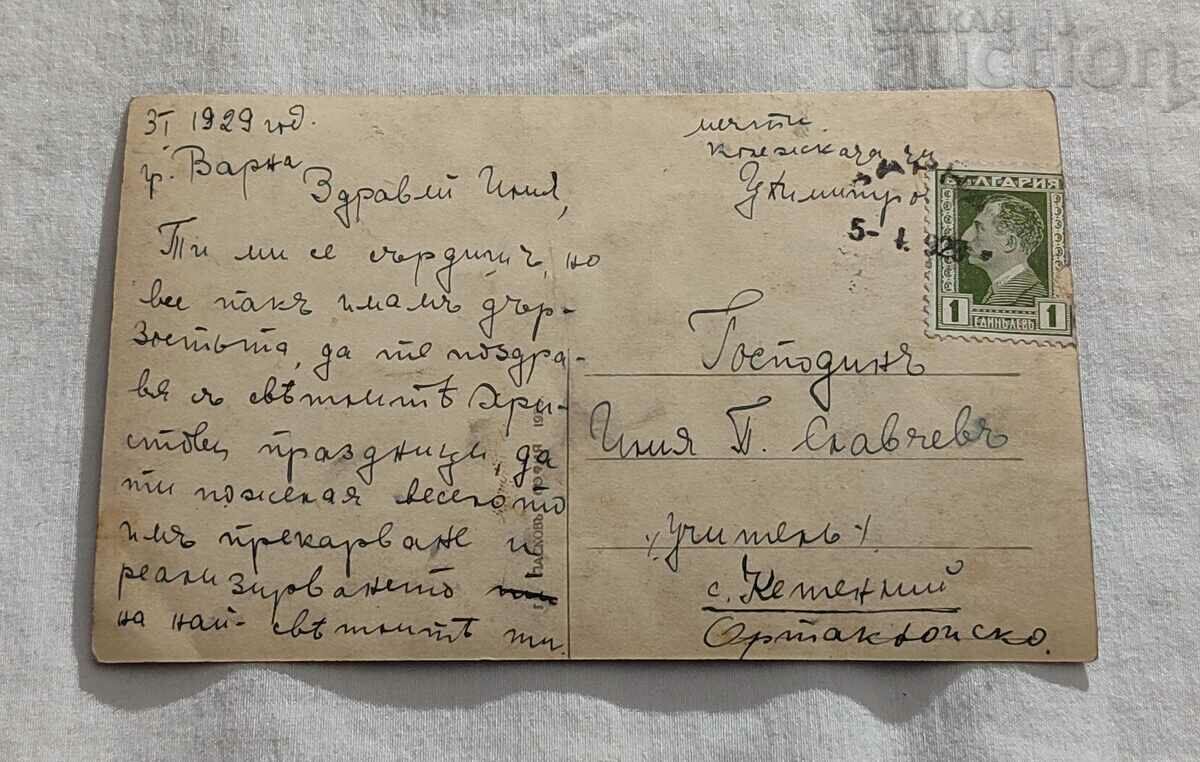 3I 1929 год.
гр. Варна
Здравей Илия,
Ти ми се сърдишъ, но
все пакъ имамъ дър-
зостьта, да те поздра-
вя съ свѣтлитѣ Хри-
стови праздници, да
ти пожелая веселото
имъ прекарване и
реализирването
на най-свѣтлитѣ ти
мечти.
Димитро
5- I. 929
БЪЛГАРИЯ
1 ЕДИНЪ ЛЕВЪ 1
Господинъ
Илия П. Славчевъ
/учитель/
с. Кетенлий
Ортакьойско.
ПАСКОВЪ
auction